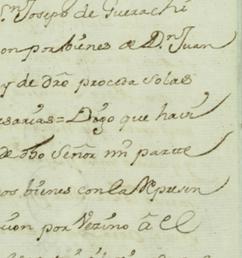 Sⁿ Joseph de Guerachi
on por bienes de Dⁿ Juan
y de dro proceda solas
esarias = Digo que havi
de dho Señor mi parte
os bienes con la Repusen
cion por Vezino a el